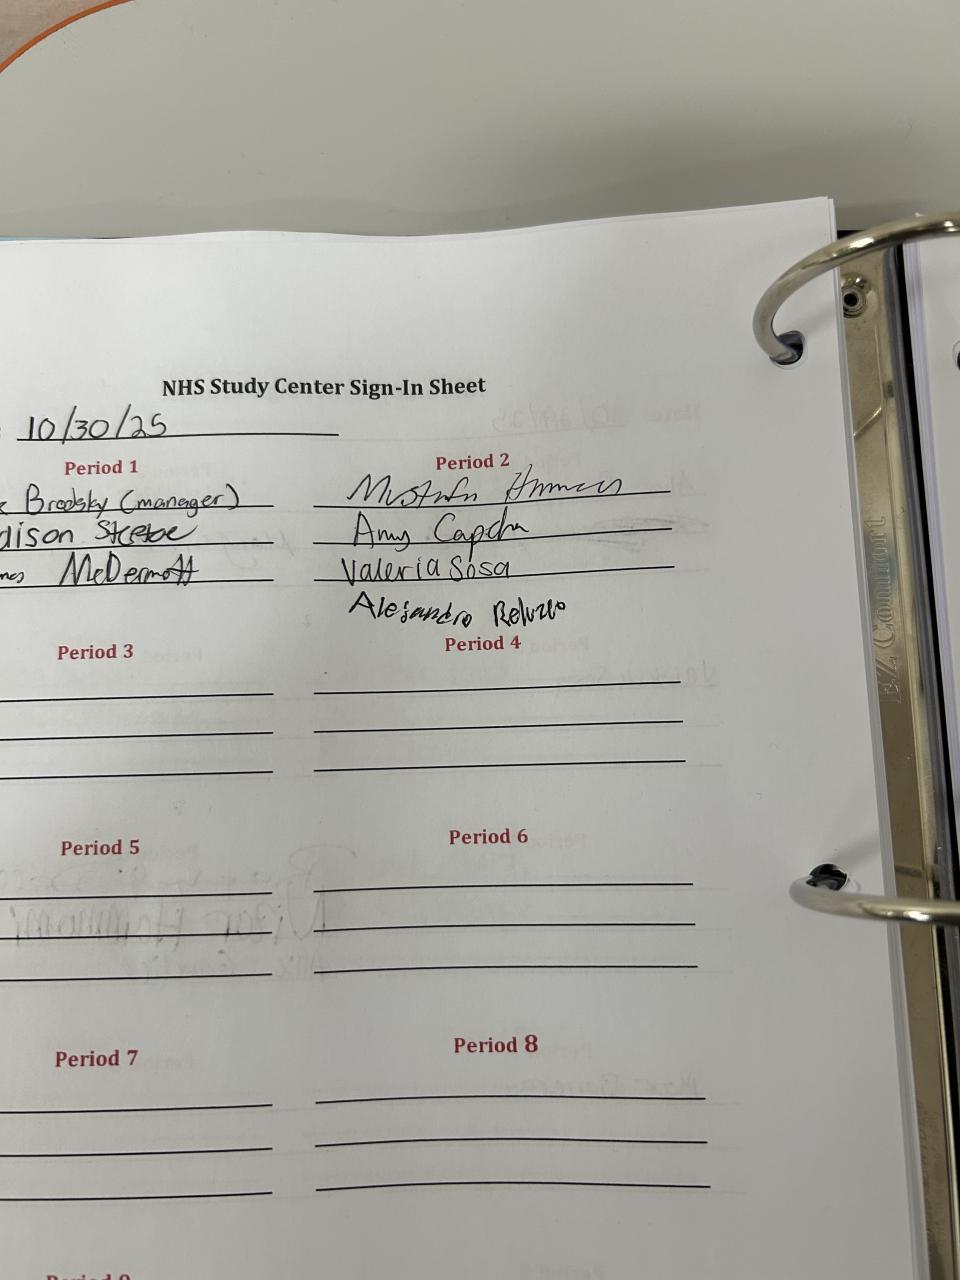 NHS Study Center Sign-In Sheet
10/30/25
Period 1
Brodsky (manager)
dison
McDermott
Period 2
Amy
Valeria Sosa
Alejandro
Period 3
Period 4
Period 5
Period 6
Period 7
Period 8
EZ Comfort